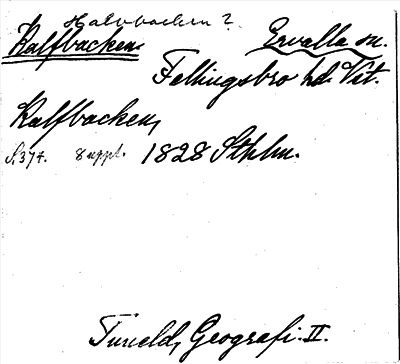 Halvbacken?
Kalfbacken Ervalla sn.
Fellingsbro hd. Vst.
Kalfbacken,
S. 374. 8 uppl. 1828 Sthlm.
Tuneld, Geografi. II.